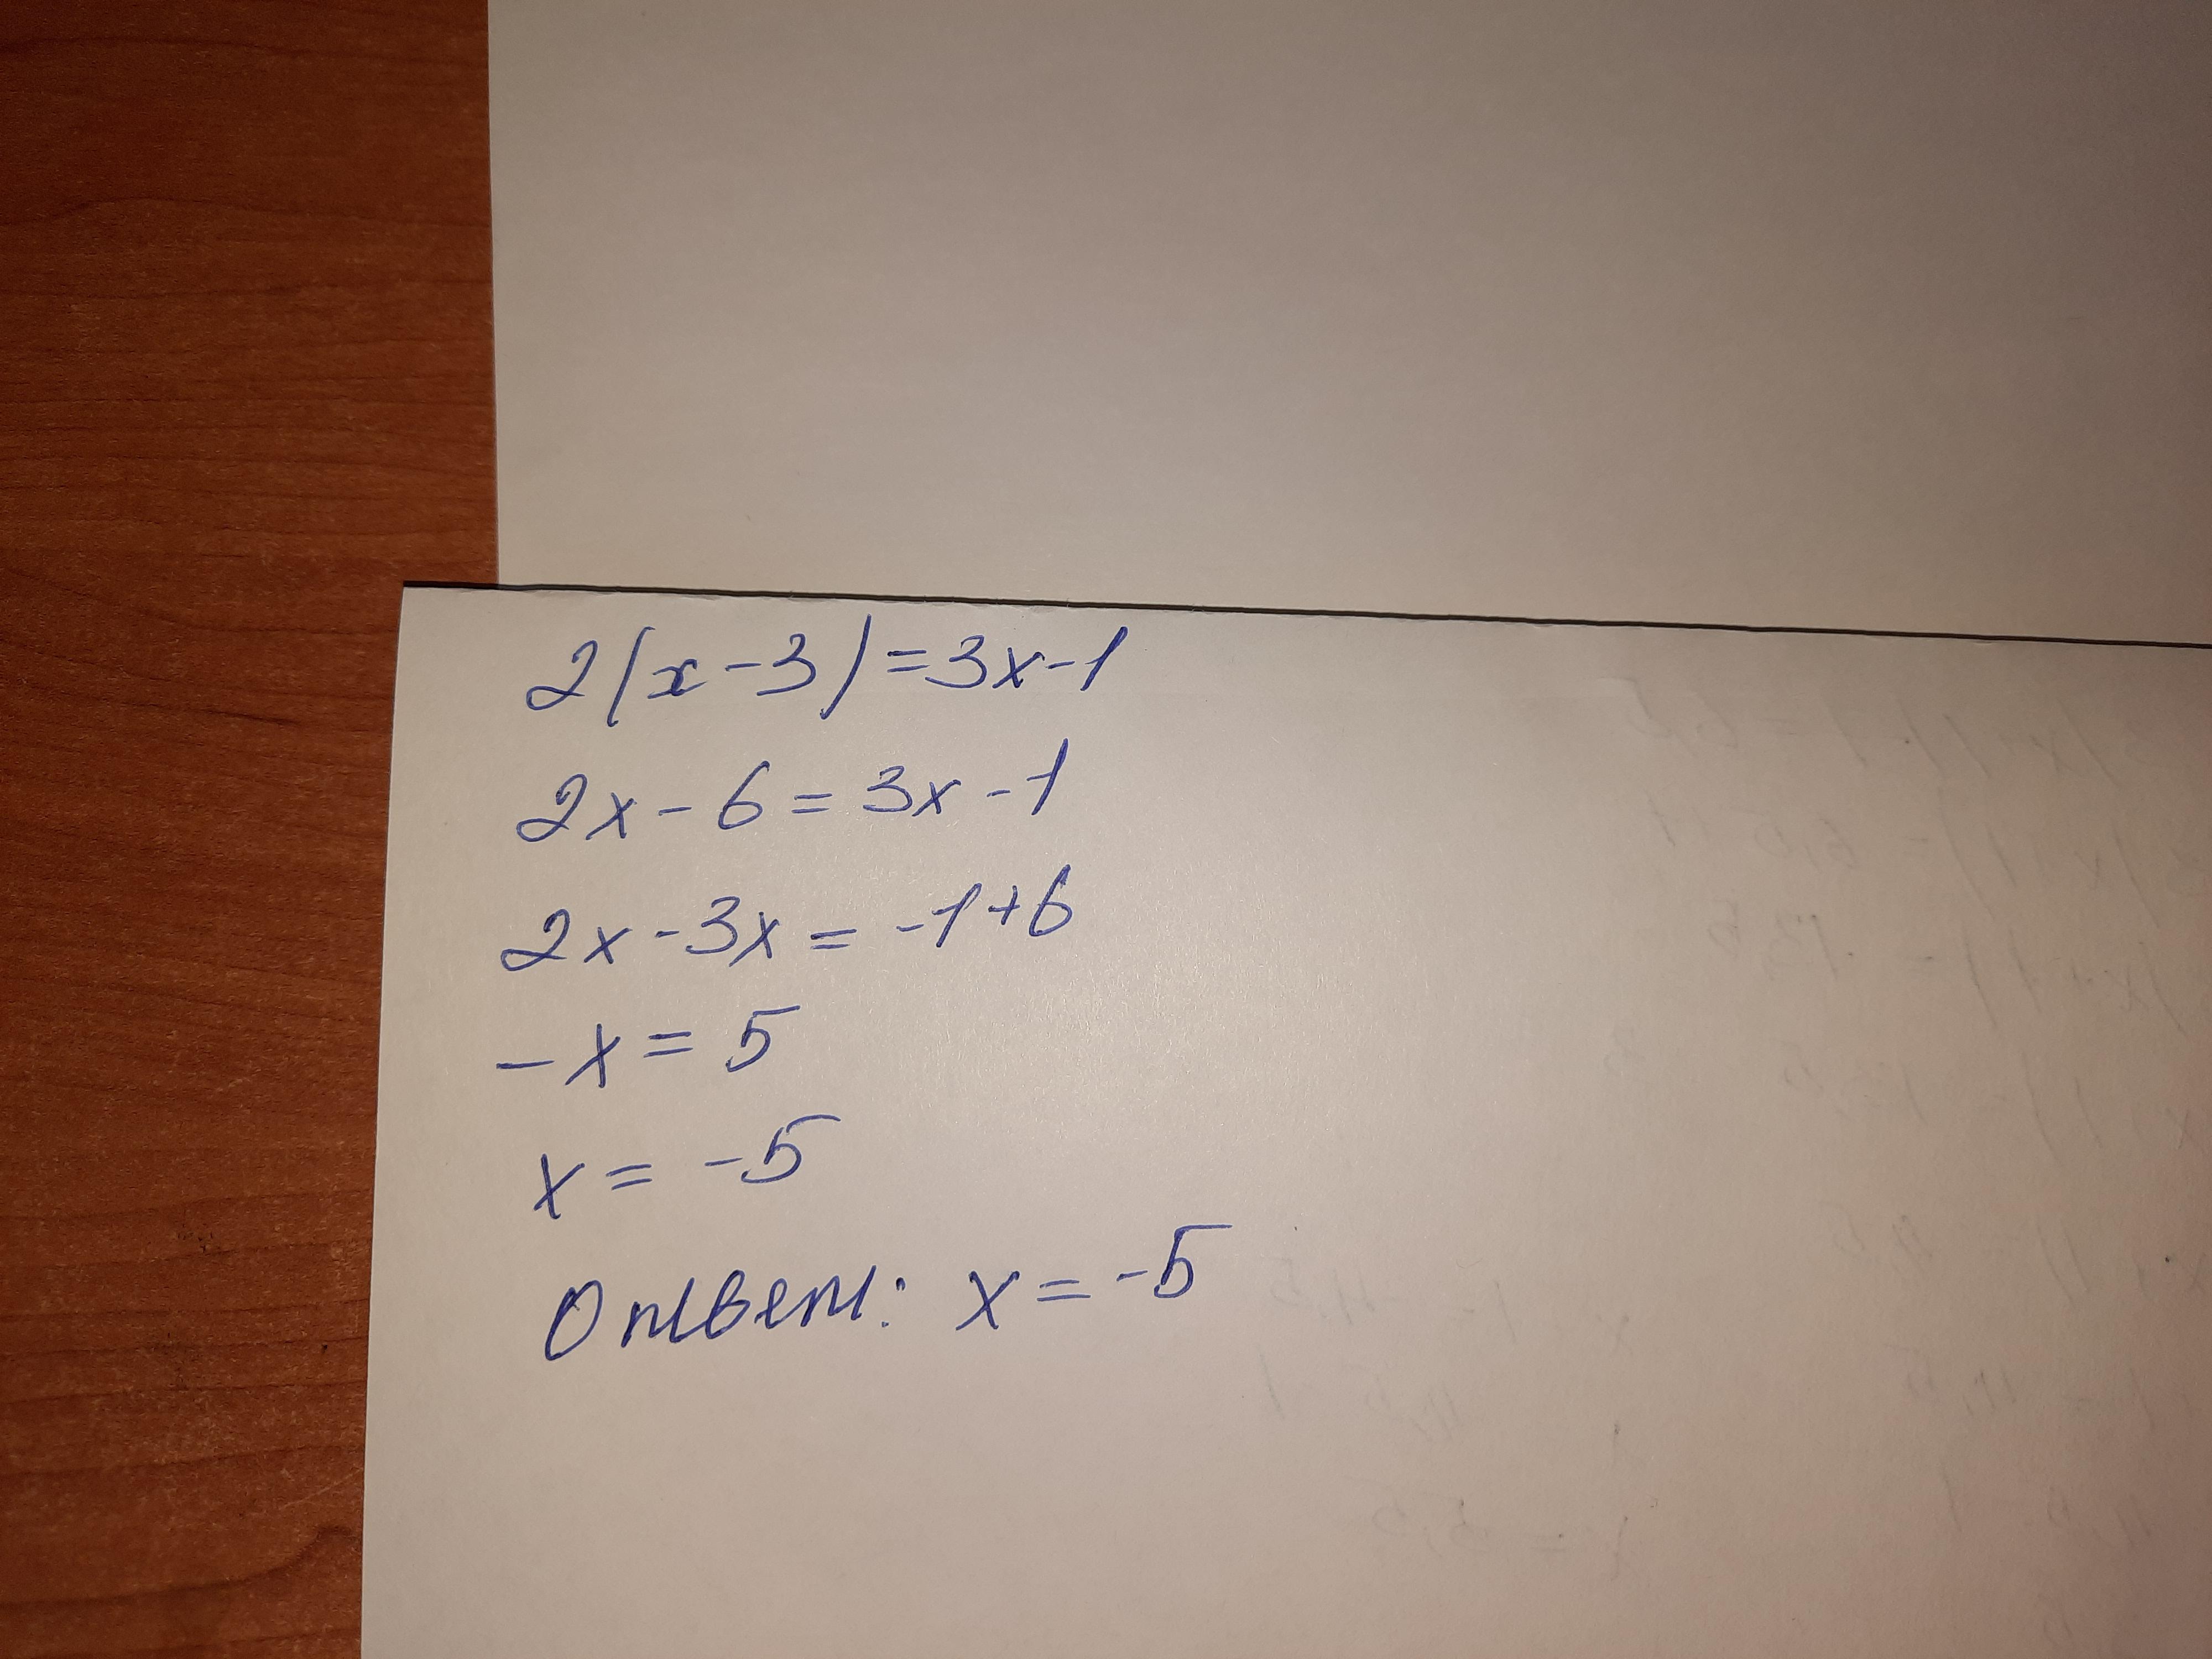 2(x-3)=3x-1
2x-6=3x-1
2x-3x=-1+6
-x=5
x=-5
Ответ: x=-5